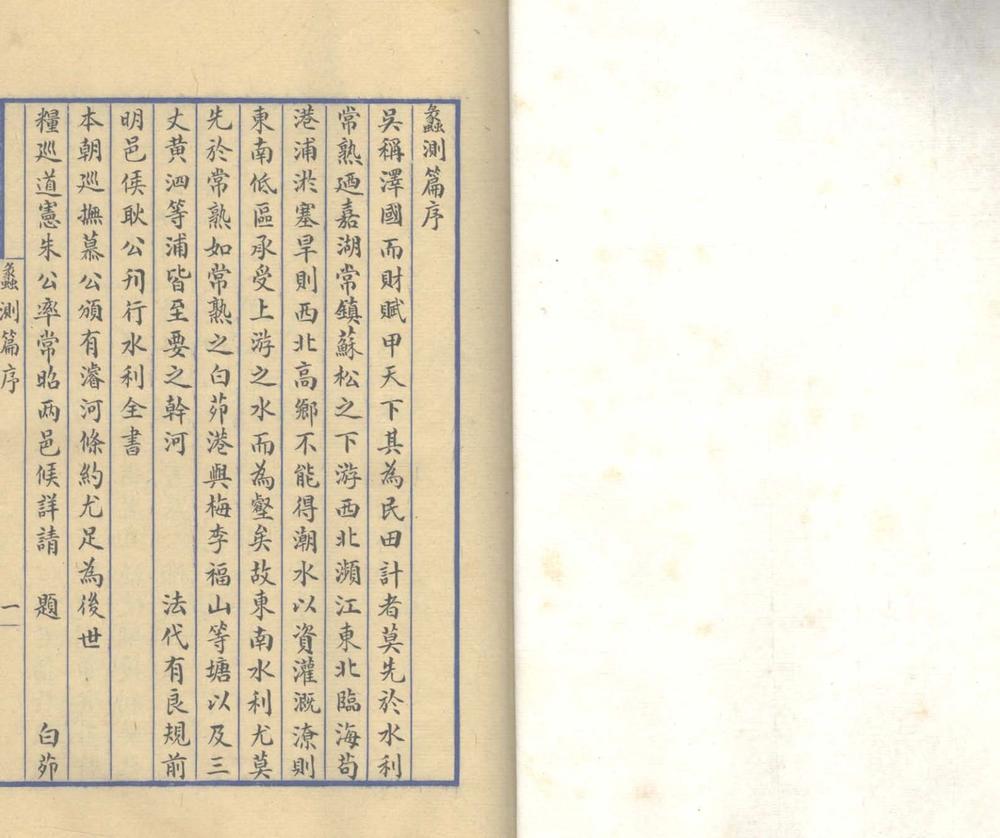 蠡測篇序
吳稱澤國而財賦甲天下其為民田計者莫先於水利
常熟廼嘉湖常鎮蘇松之下游西北瀕江東北臨海苟
港浦淤塞旱則西北高鄉不能得潮水以資灌溉潦則
東南低區承受上游之水而為壑矣故東南水利尤莫
先於常熟如常熟之白茆港與梅李福山等塘以及三
丈黃泗等浦皆至要之幹河 法代有良規前
明邑侯耿公刊行水利全書
本朝廵撫慕公頒有濬河條約尤足為後世
糧廵道憲朱公率常昭两邑候詳請 題 白茆
蠡測篇序 一